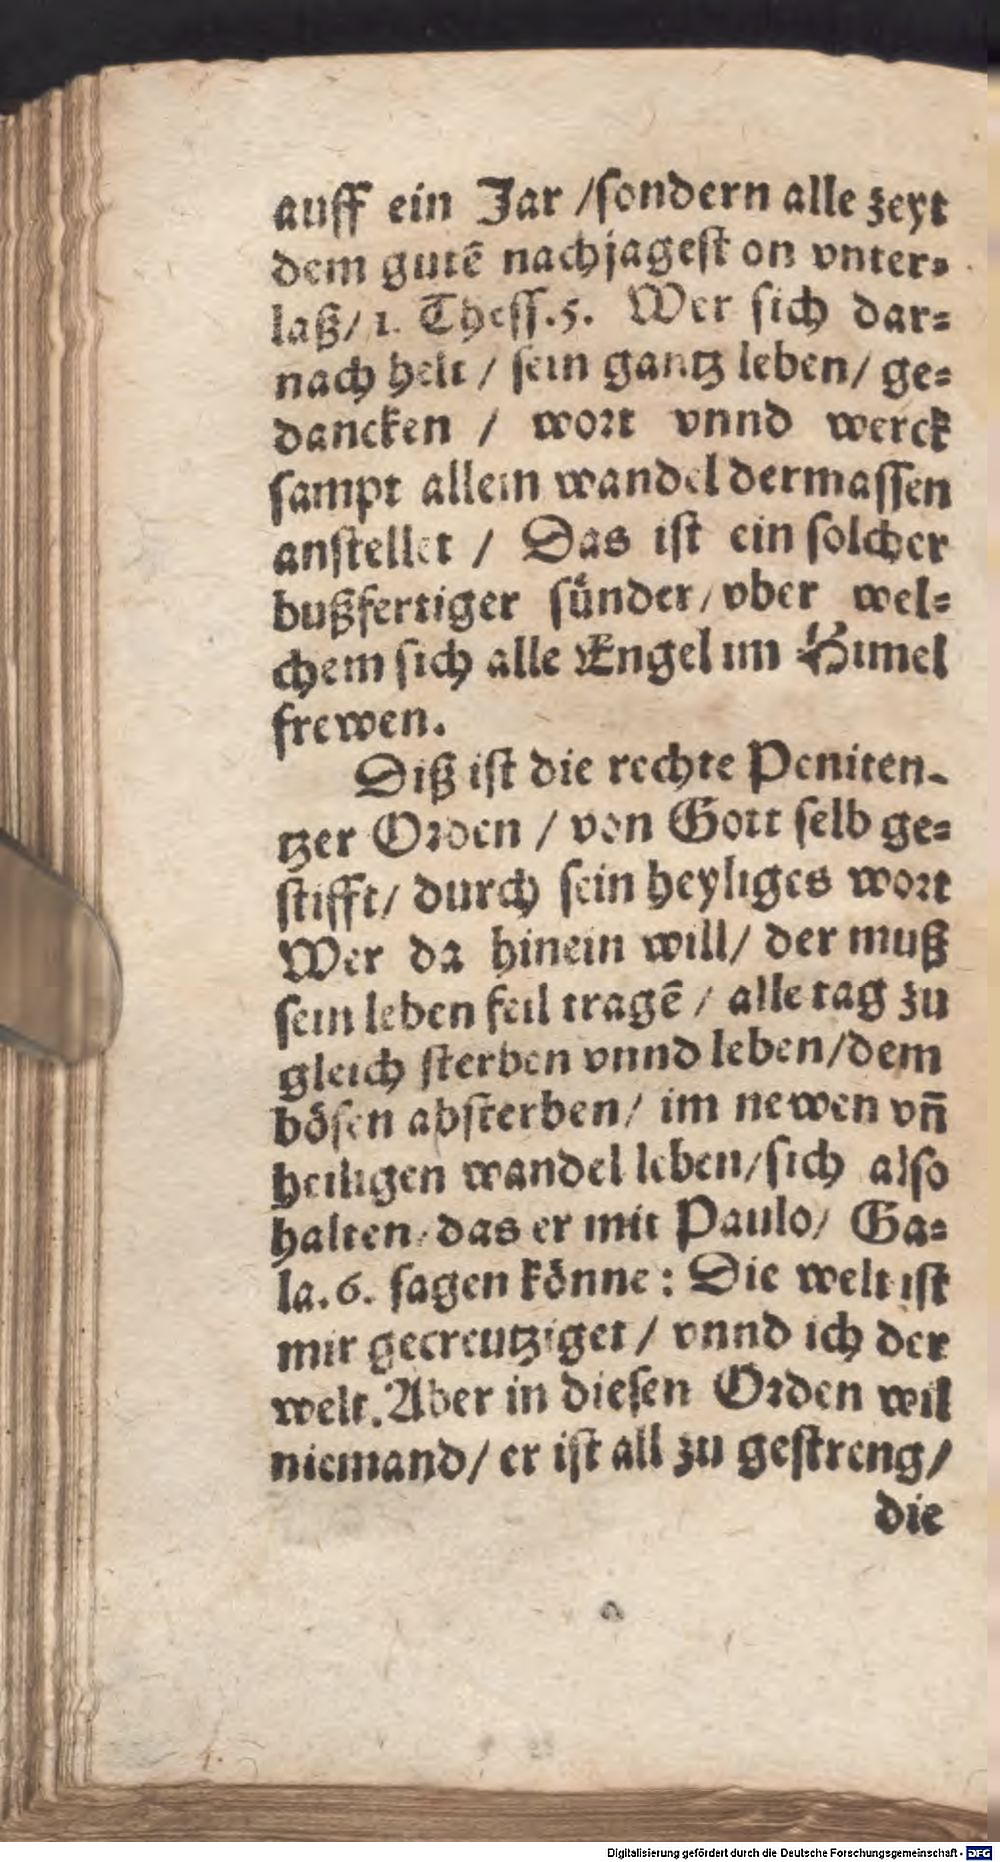 auff ein Jar /sondern alle zeyt
dem gutẽ nachjagest on vnter-
laß/ 1. Thess.5. Wer sich dar-
nach helt / sein gantz leben/ ge-
dancken / wort vnnd werck
sampt allem wandel dermassen
anstellet / Das ist ein solcher
bußfertiger sünder/vber wel-
chem sich alle Engel im Himel
frewen.
Diß ist die rechte Peniten-
tzer Orden / von Gott selb ge-
stifft/ durch sein heyliges wort
Wer da hinein will/ der muß
sein leben feil tragẽ / alle tag zu
gleich sterben vnnd leben/dem
bösen absterben/ im newen vñ
heiligen wandel leben/sich also
halten/das er mit Paulo/ Ga-
la.6. sagen könne: Die welt ist
mir gecreutziget / vnnd ich der
welt. Aber in diesen Orden wil
niemand/ er ist all zu gestreng/
die
Digitalisierung gefördert durch die Deutsche Forschungsgemeinschaft - DFG